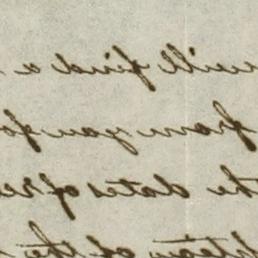 will find a
from you fo
the dates of re
of the